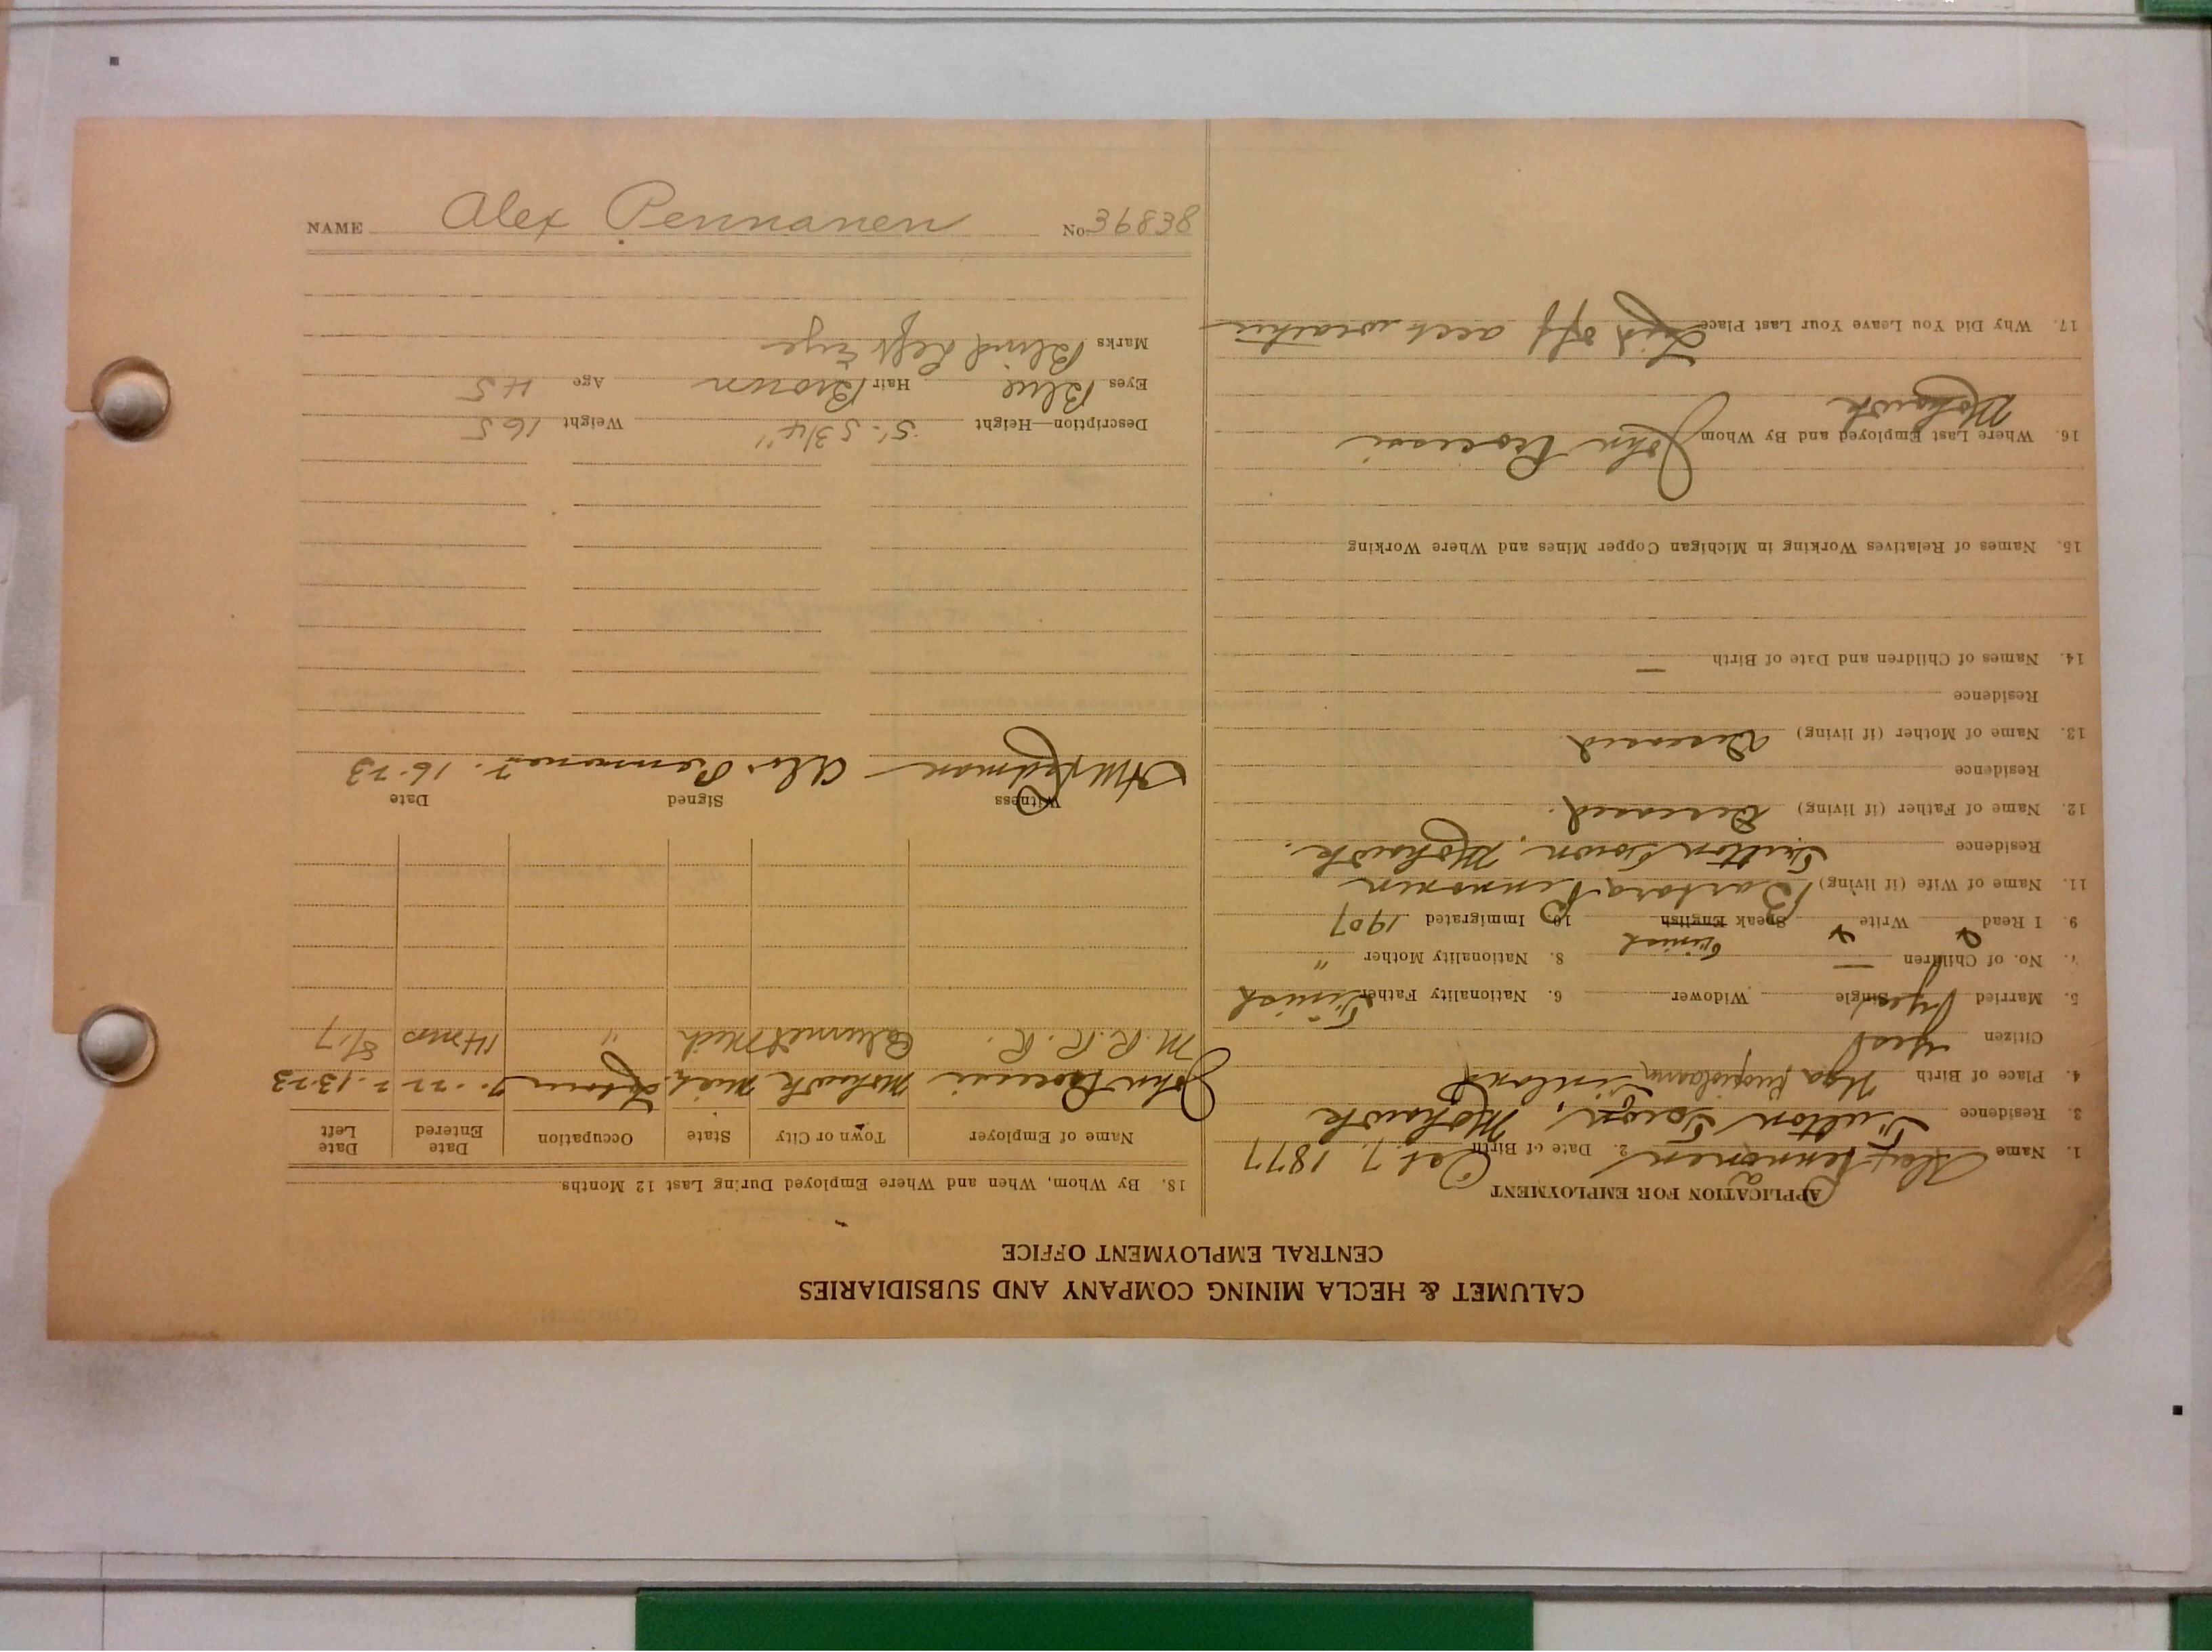 NAME Alex Pennanen No. 36838
CALUMET & HECLA MINING COMPANY AND SUBSIDIARIES
CENTRAL EMPLOYMENT OFFICE
APPLICATION FOR EMPLOYMENT
1. Name Alex Pennanen 2. Date of Birth Oct. 7, 1877
3. Residence Fulton Town, Mohawk
4. Place of Birth Finland
Citizen yes
5. Married yes Single Widower 6. Nationality Father Finish
7. No. of Children — 8. Nationality Mother "
Finish
9. I Read Write Speak English 10. Immigrated 1907
11. Name of Wife (if living) Barbara Pennonen
Residence Fulton Town, Mohawk.
12. Name of Father (if living) Deceased.
Residence
13. Name of Mother (if living) Deceased
Residence
14. Names of Children and Date of Birth —
15. Names of Relatives Working in Michigan Copper Mines and Where Working
16. Where Last Employed and By Whom John
Mohawk
17. Why Did You Leave Your Last Place Laid off acct weather
18. By Whom, When and Where Employed During Last 12 Months
Name of Employer Town or City State Occupation Date Entered Date Left
John Mohawk Mich. 2-13-23
M. R. R. R. Calumet Mich " 14 mos 8/17
Witness Signed Date
Alex Pennanen 2-16-23
Description—Height 5'-5 3/4" Weight 165
Eyes Blue Hair Brown Age 45
Marks Blind Left Eye